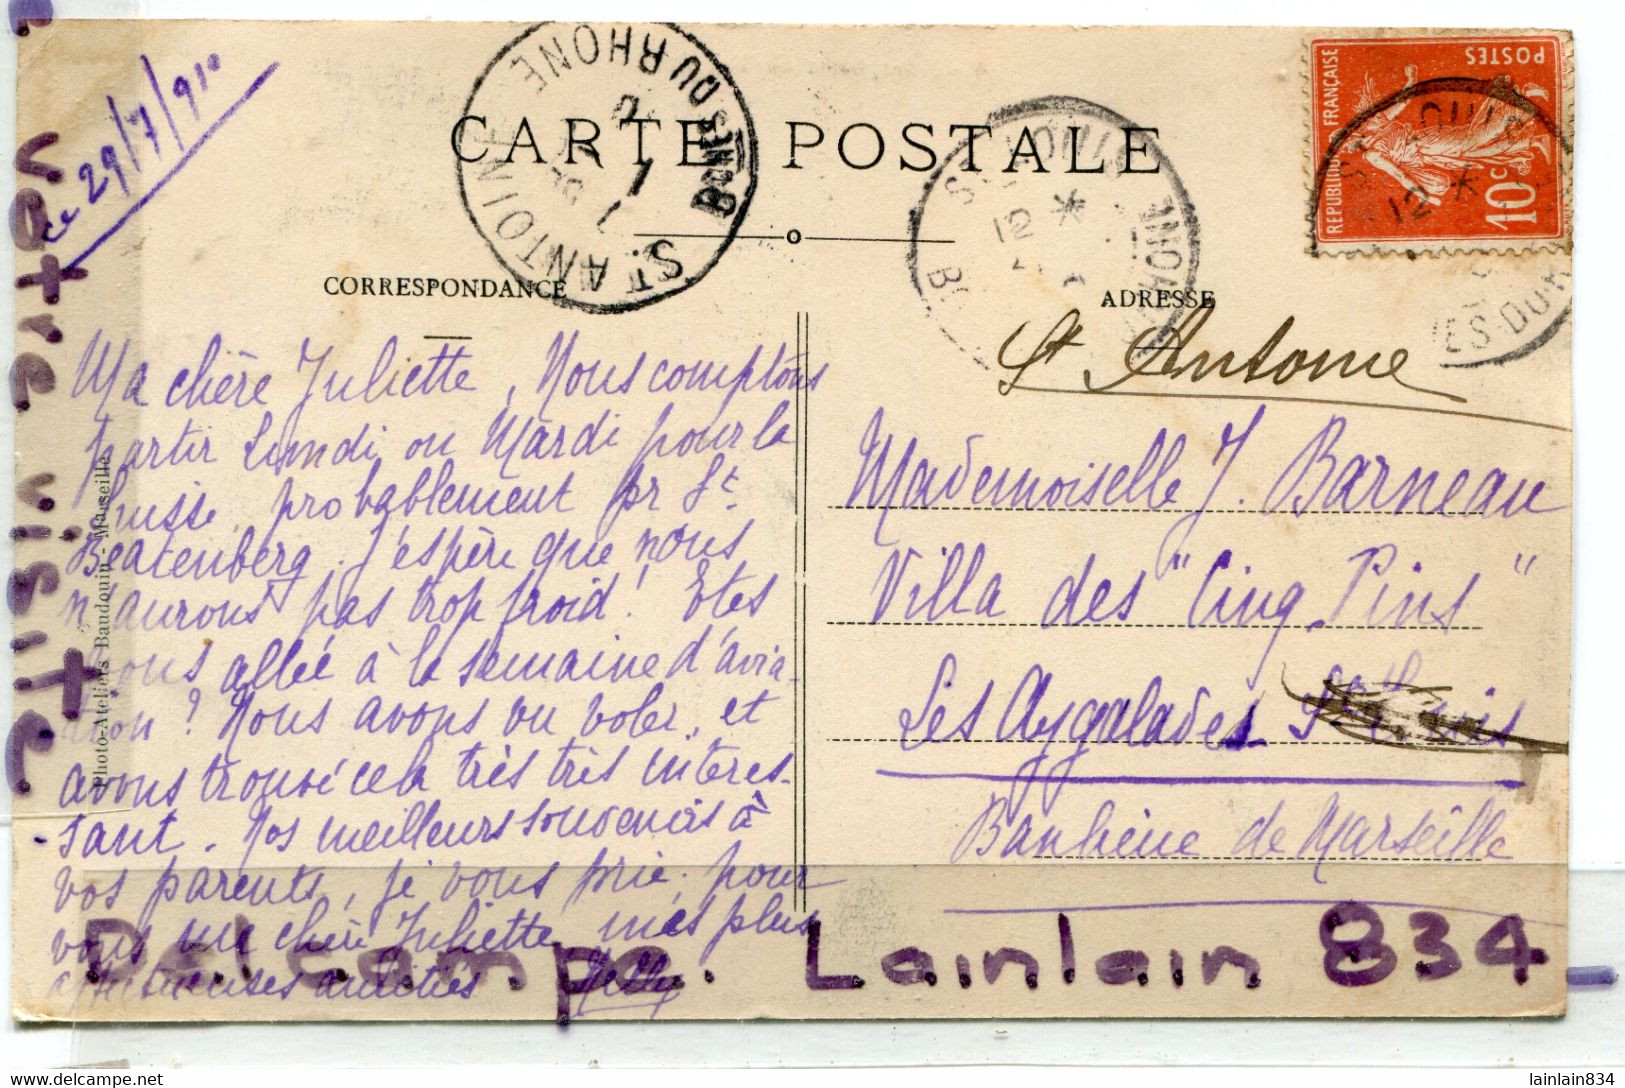 ce 29/7/910
CARTE POSTALE
CORRESPONDANCE
ADRESSE
ST ANTOINE
BCHES DU RHONE
REPUBLIQUE FRANÇAISE
POSTES
10c
12 *
12 *
St Antoine
Ma chère Juliette, Nous comptons
partir Lundi ou Mardi pour la
Suisse, probablement pr St.
Beatenberg. J'espère que nous
n'aurons pas trop froid! Etes
vous allée à la semaine d'avia-
tion? Nous avons vu voler, et
avons trouvé cela très très intéres-
-sant. Nos meilleurs souvenirs à
vos parents, je vous prie, pour
vous ma chère Juliette mes plus
affectueuses amitiés Nelly
Mademoiselle J. Barneau
Villa des "Cinq Pins"
Les Aygalades St Louis
Banlieue de Marseille
Photo-Ateliers Baudouin - Marseille
votre visite
Delcampe. Lainlain 834
www.delcampe.net
lainlain834